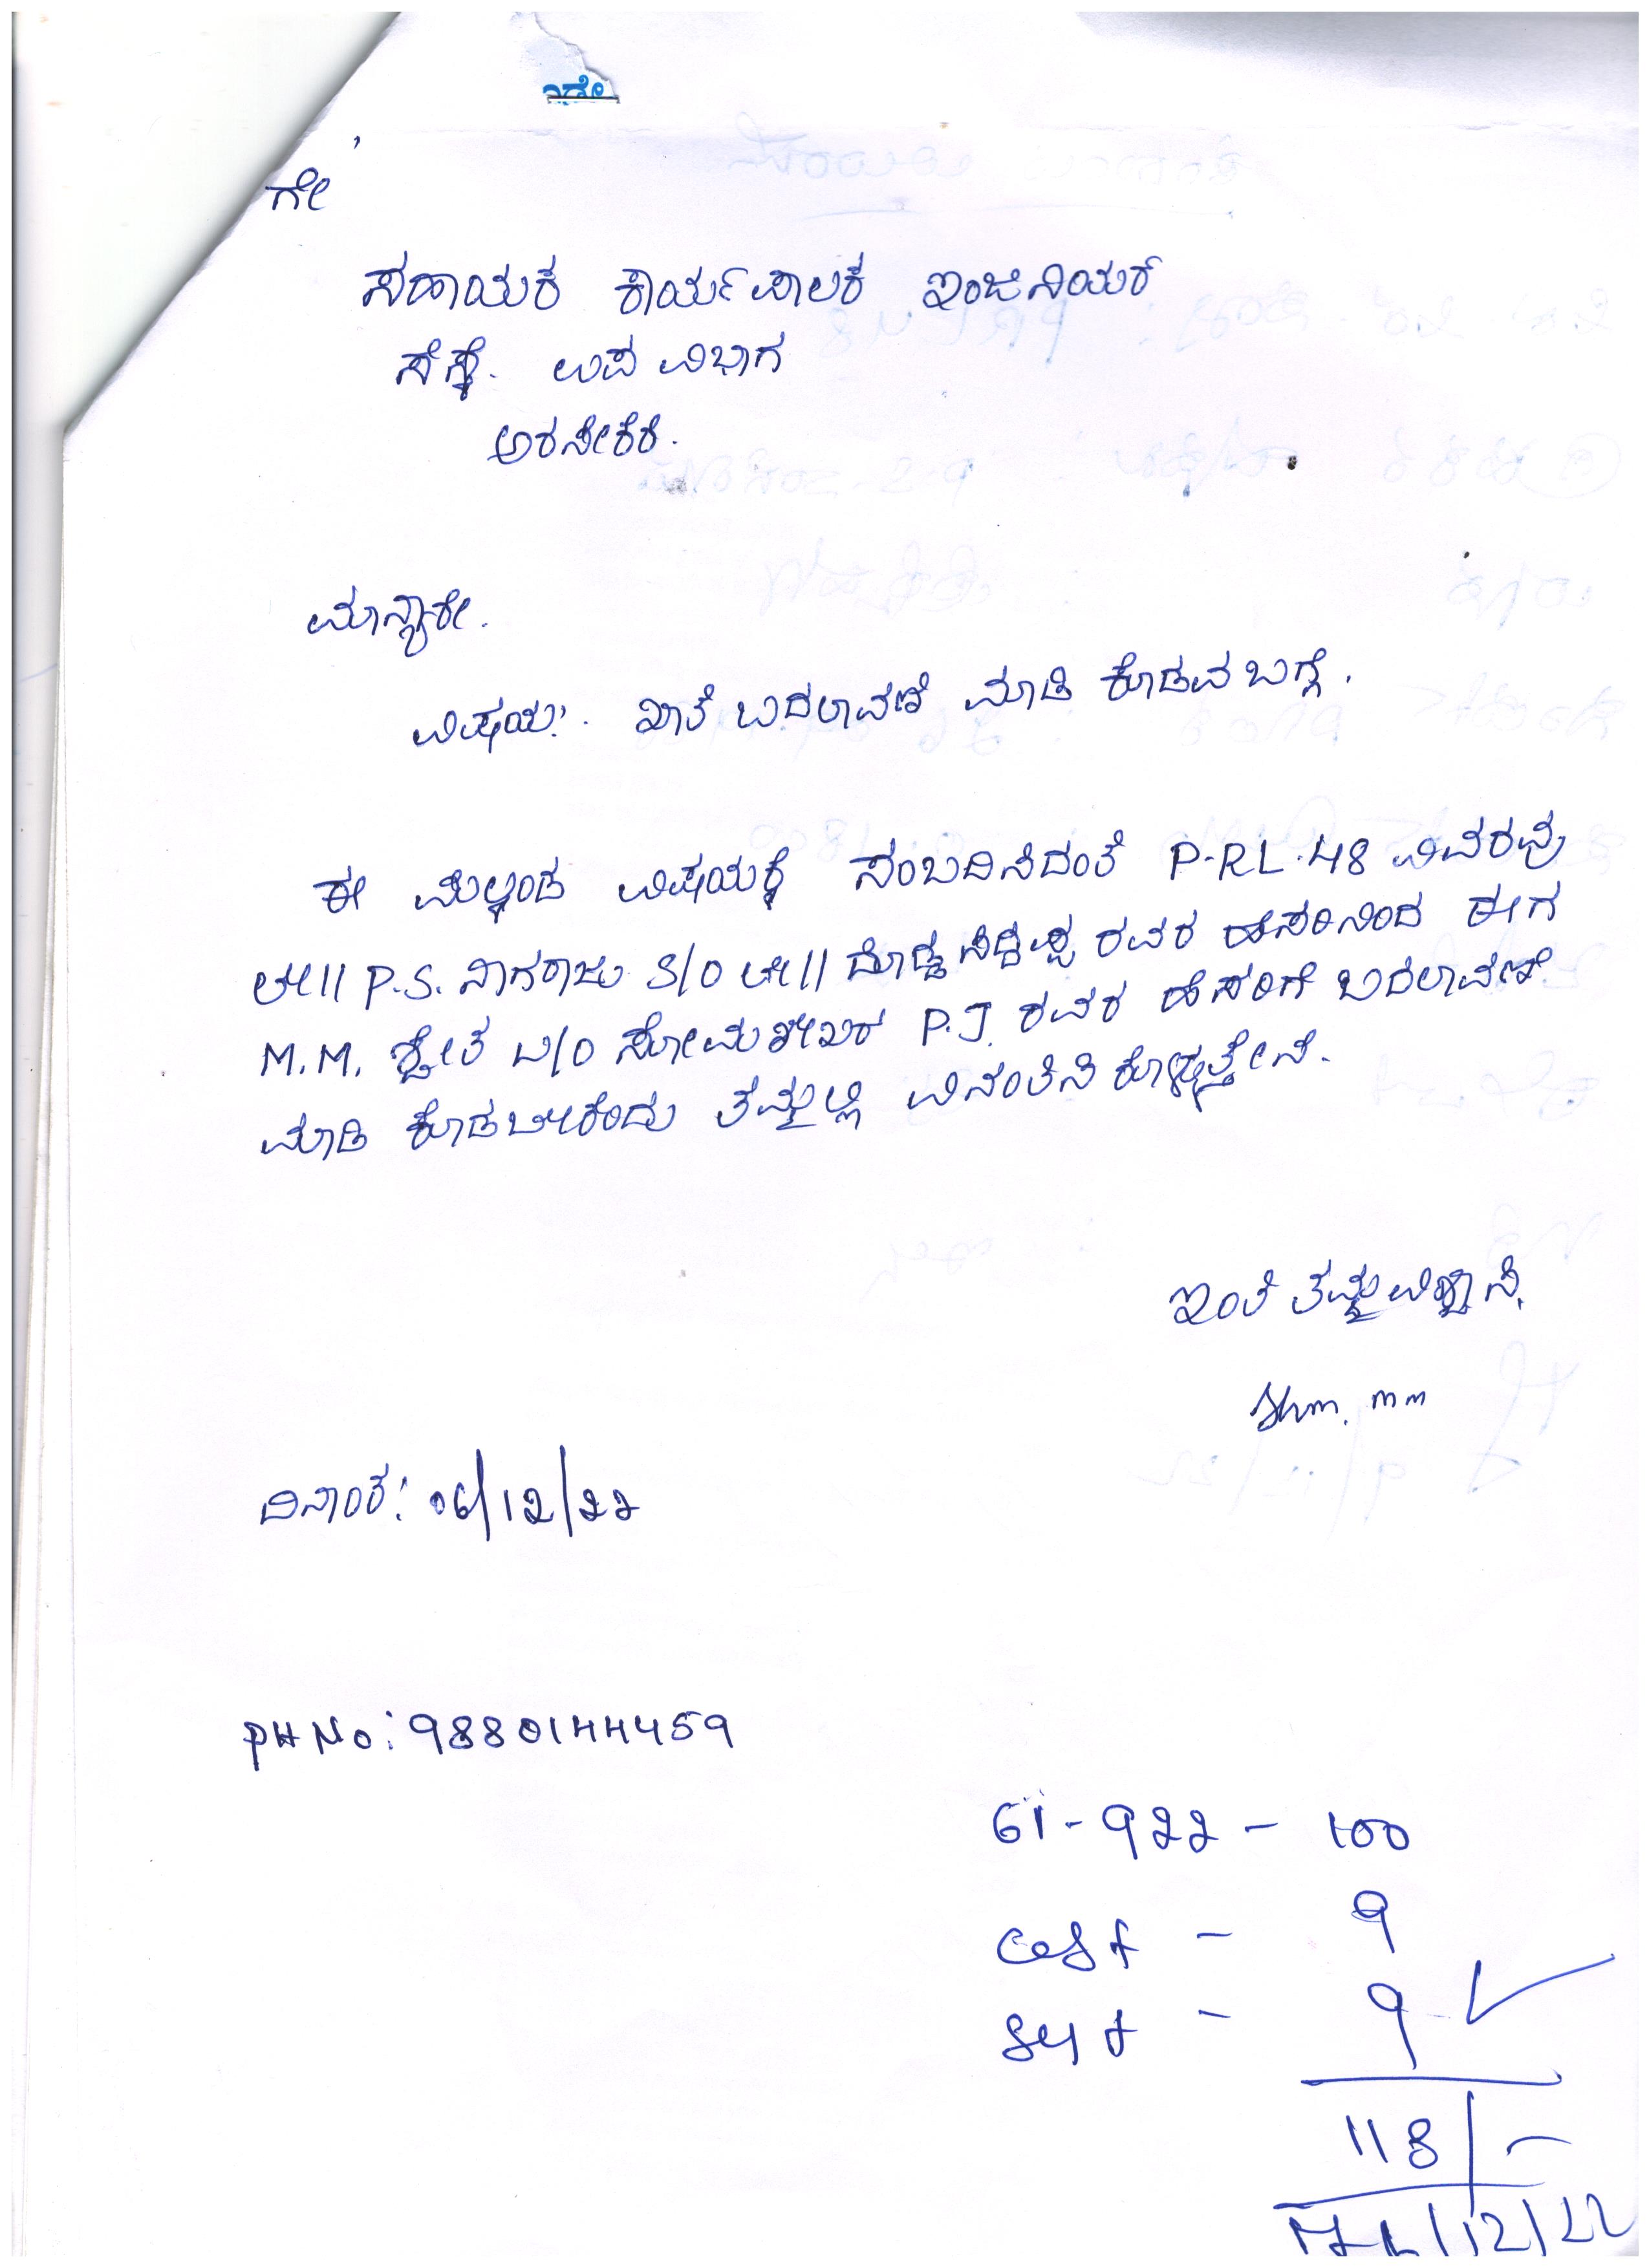 ಗೇ
ಸಹಾಯಕ ಕಾರ್ಯಪಾಲಕ ಇಂಜಿನಿಯರ್
ಸೆಸ್ಕ್. ಉಪ ವಿಭಾಗ
ಅರಸೀಕೆರೆ.
ಮಾನ್ಯರೇ.
ವಿಷಯ:. ಖಾತೆ ಬದಲಾವಣೆ ಮಾಡಿ ಕೊಡುವ ಬಗ್ಗೆ.
ಈ ಮೇಲ್ಕಂಡ ವಿಷಯಕ್ಕೆ ಸಂಬದಿಸಿದಂತೆ P-RL.48 ವಿವರವು
ಲೇ|| P.S. ನಾಗರಾಜು S/O ಲೇ|| ದೊಡ್ಡಸಿದ್ದಪ್ಪ ರವರ ಹೆಸರಿನಿಂದ ಈಗ
M.M. ಶ್ವೇತ W/O ಸೋಮಶೇಖರ್ P.J. ರವರ ಹೆಸರಿಗೆ ಬದಲಾವಣೆ
ಮಾಡಿ ಕೊಡಬೇಕೆಂದು ತಮ್ಮಲ್ಲಿ ವಿನಂತಿಸಿ ಕೊಳ್ಳುತ್ತೇನೆ.
ಇಂತಿ ತಮ್ಮ ವಿಶ್ವಾಸಿ,
ದಿನಾಂಕ: 06/12/22
PH No: 9880144459
61-922 - 100
CGST - 9
SGST - 9
118/-
/12/22